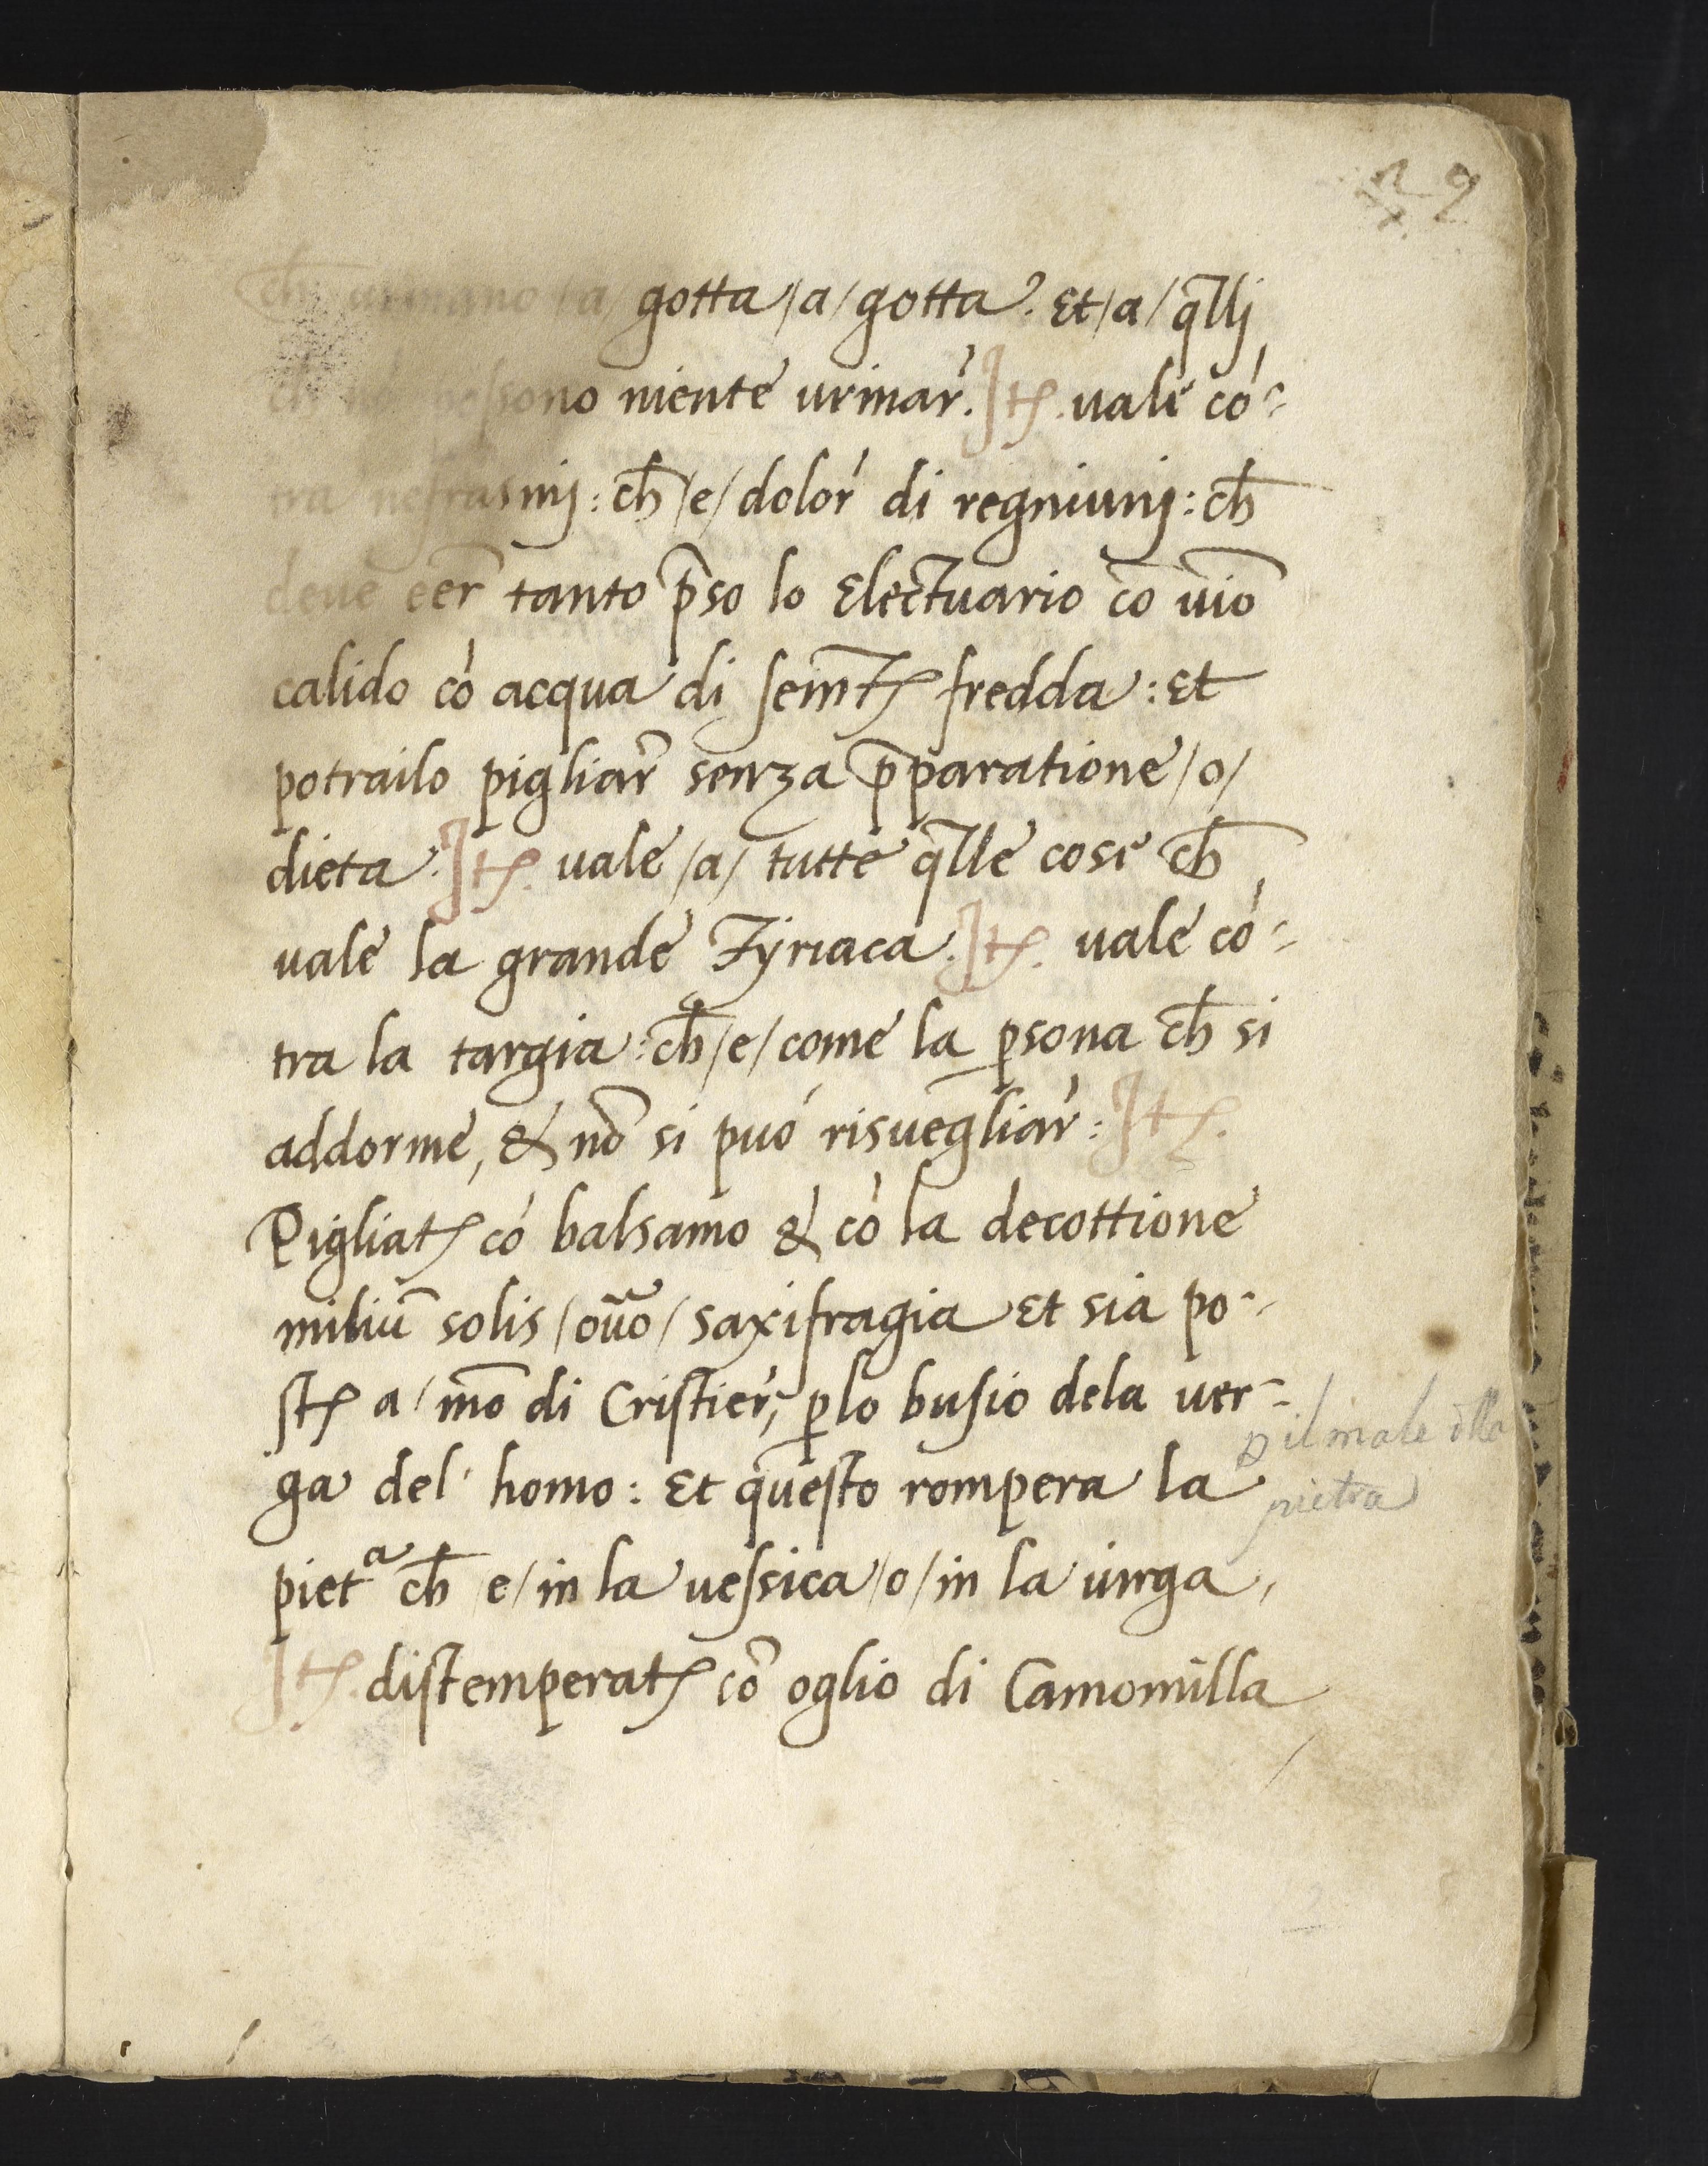 29
ch̅ urinano /a/ gotta /a/ gotta. Et /a/ q̅llj
ch̅ sono niente urinar̀. Itꝫ. uale cò-
tra nefrasnij: ch̅ /e/ dolor̀ di regniunj: ch̅
deue eer̃ tanto p̅so lo Electuario cõ uio̅
calido cò acqua di sem̅tꝫ fredda: Et
potrailo pigliar̃ senza p̅paratione /o/
dieta. Itꝫ. uale /a/ tutte q̅lle cose ch̅
uale la grande Tyriaca. Itꝫ. uale cò-
tra la targia: ch̅ /e/ come la ꝑsona ch̅ si
addorme, & nõ si può risuegliar̀: Itꝫ.
Pigliatꝫ cò balsamo & cò la decottione
miliũ solis /ou̅o/ saxifragia Et sia po-
stꝫ a / mõ di Cristier̀, ꝑ lo busio dela uer-
ga del' homo: Et questo rompera la
pietᵃ ch̅ e/ in la uessica /o/ in la uirga,
Itꝫ. distemperatꝫ cõ oglio di Camomilla
ꝑ il male d̅lla
pietra